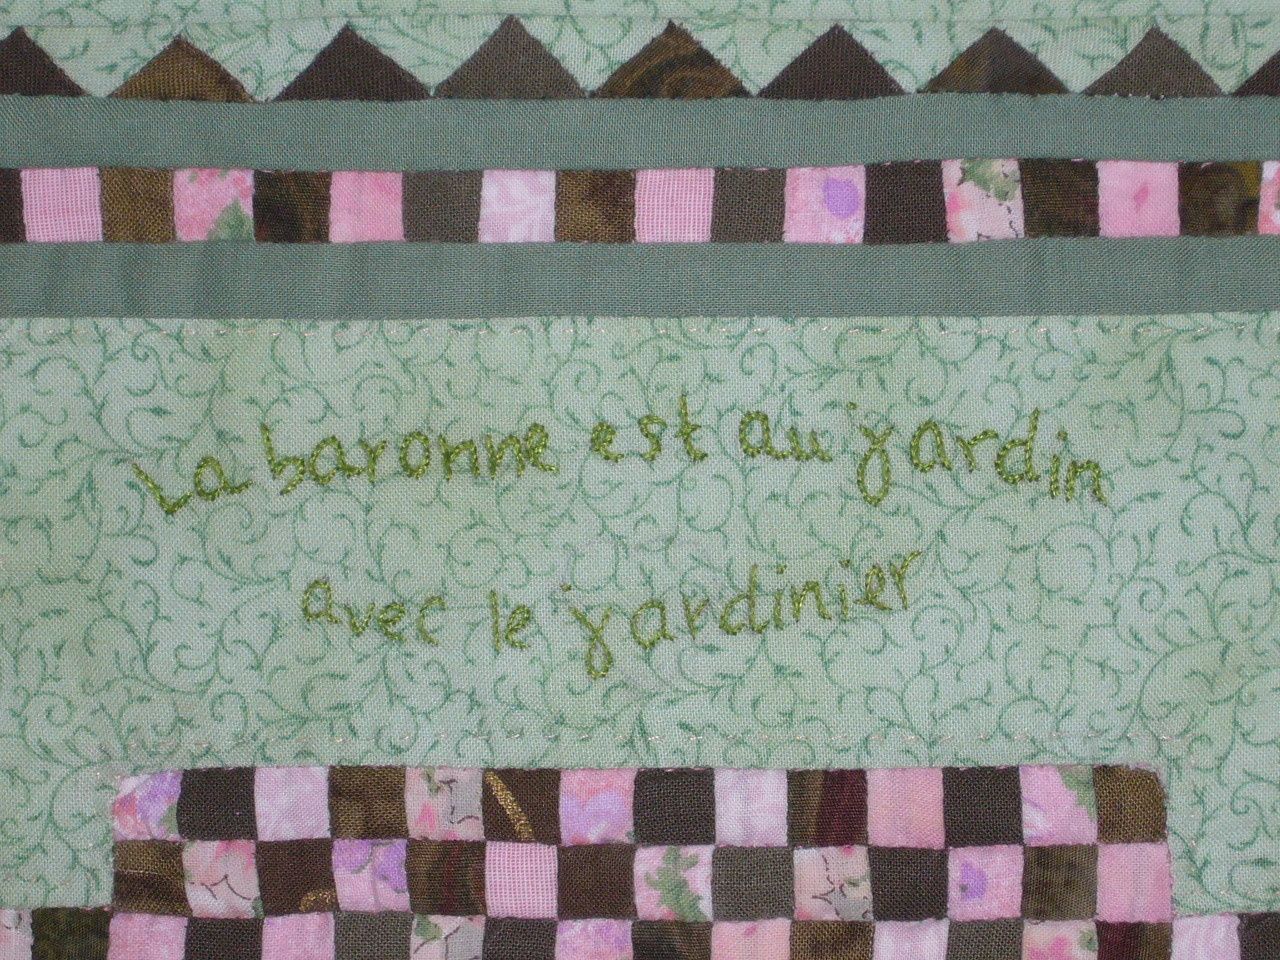 La baronne est au jardin
avec le jardinier